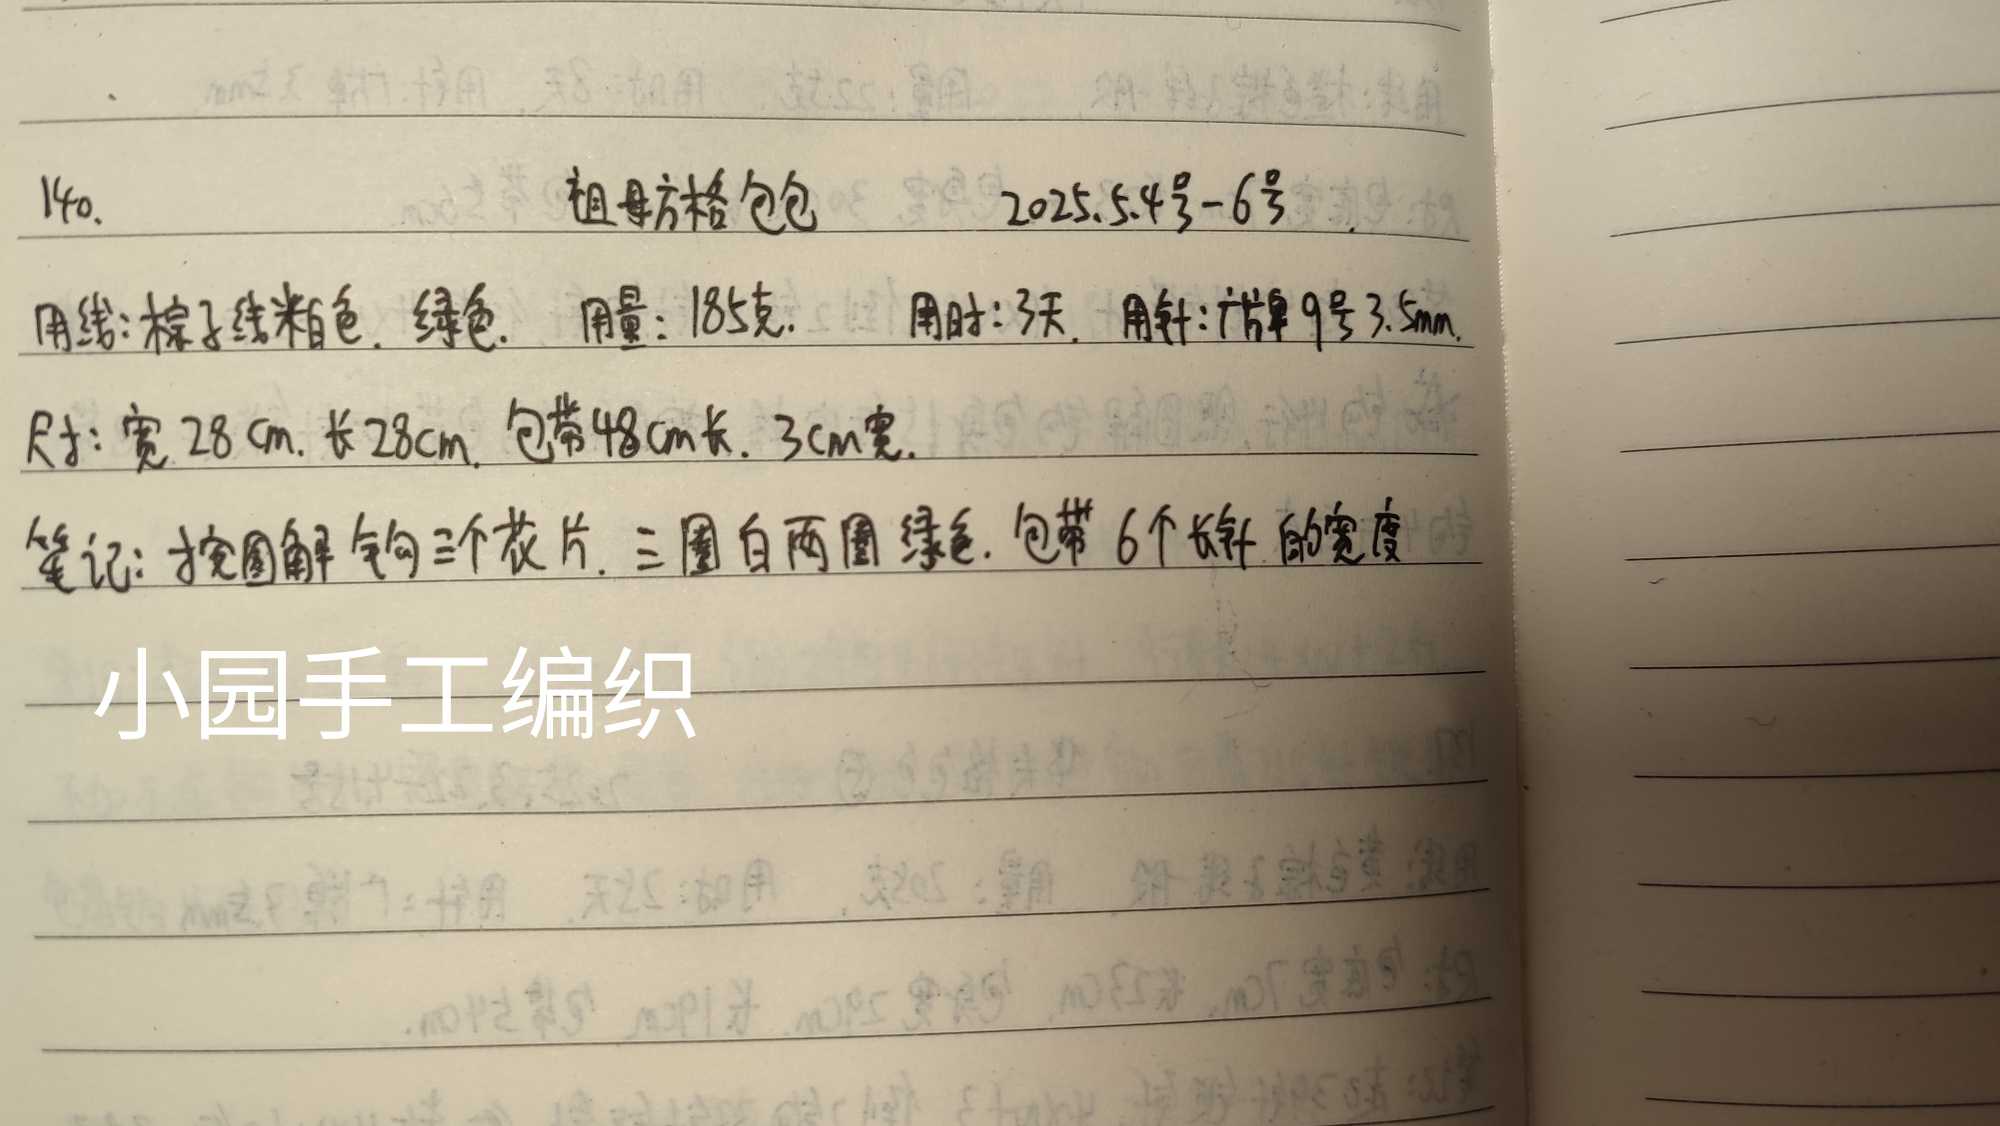 140. 祖母方格包包 2025.5.4号-6号.
用线:棕子线米白色. 绿色. 用量:185克. 用时:3天. 用针:广牌9号3.5mm.
尺寸:宽28cm. 长28cm. 包带48cm长. 3cm宽.
笔记:按图解钩三个花片. 三圈白两圈绿色. 包带6个长针的宽度
小园手工编织